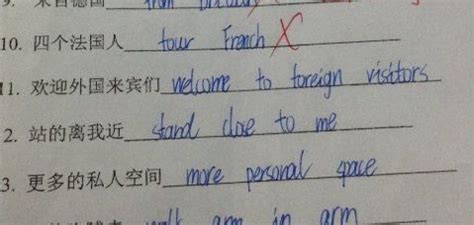 9. 来自德国 from
10. 四个法国人 four French X
11. 欢迎外国来宾们 welcome to foreign visittors
2. 站的离我近 stand close to me
3. 更多的私人空间 more personal space
walk arm in arm